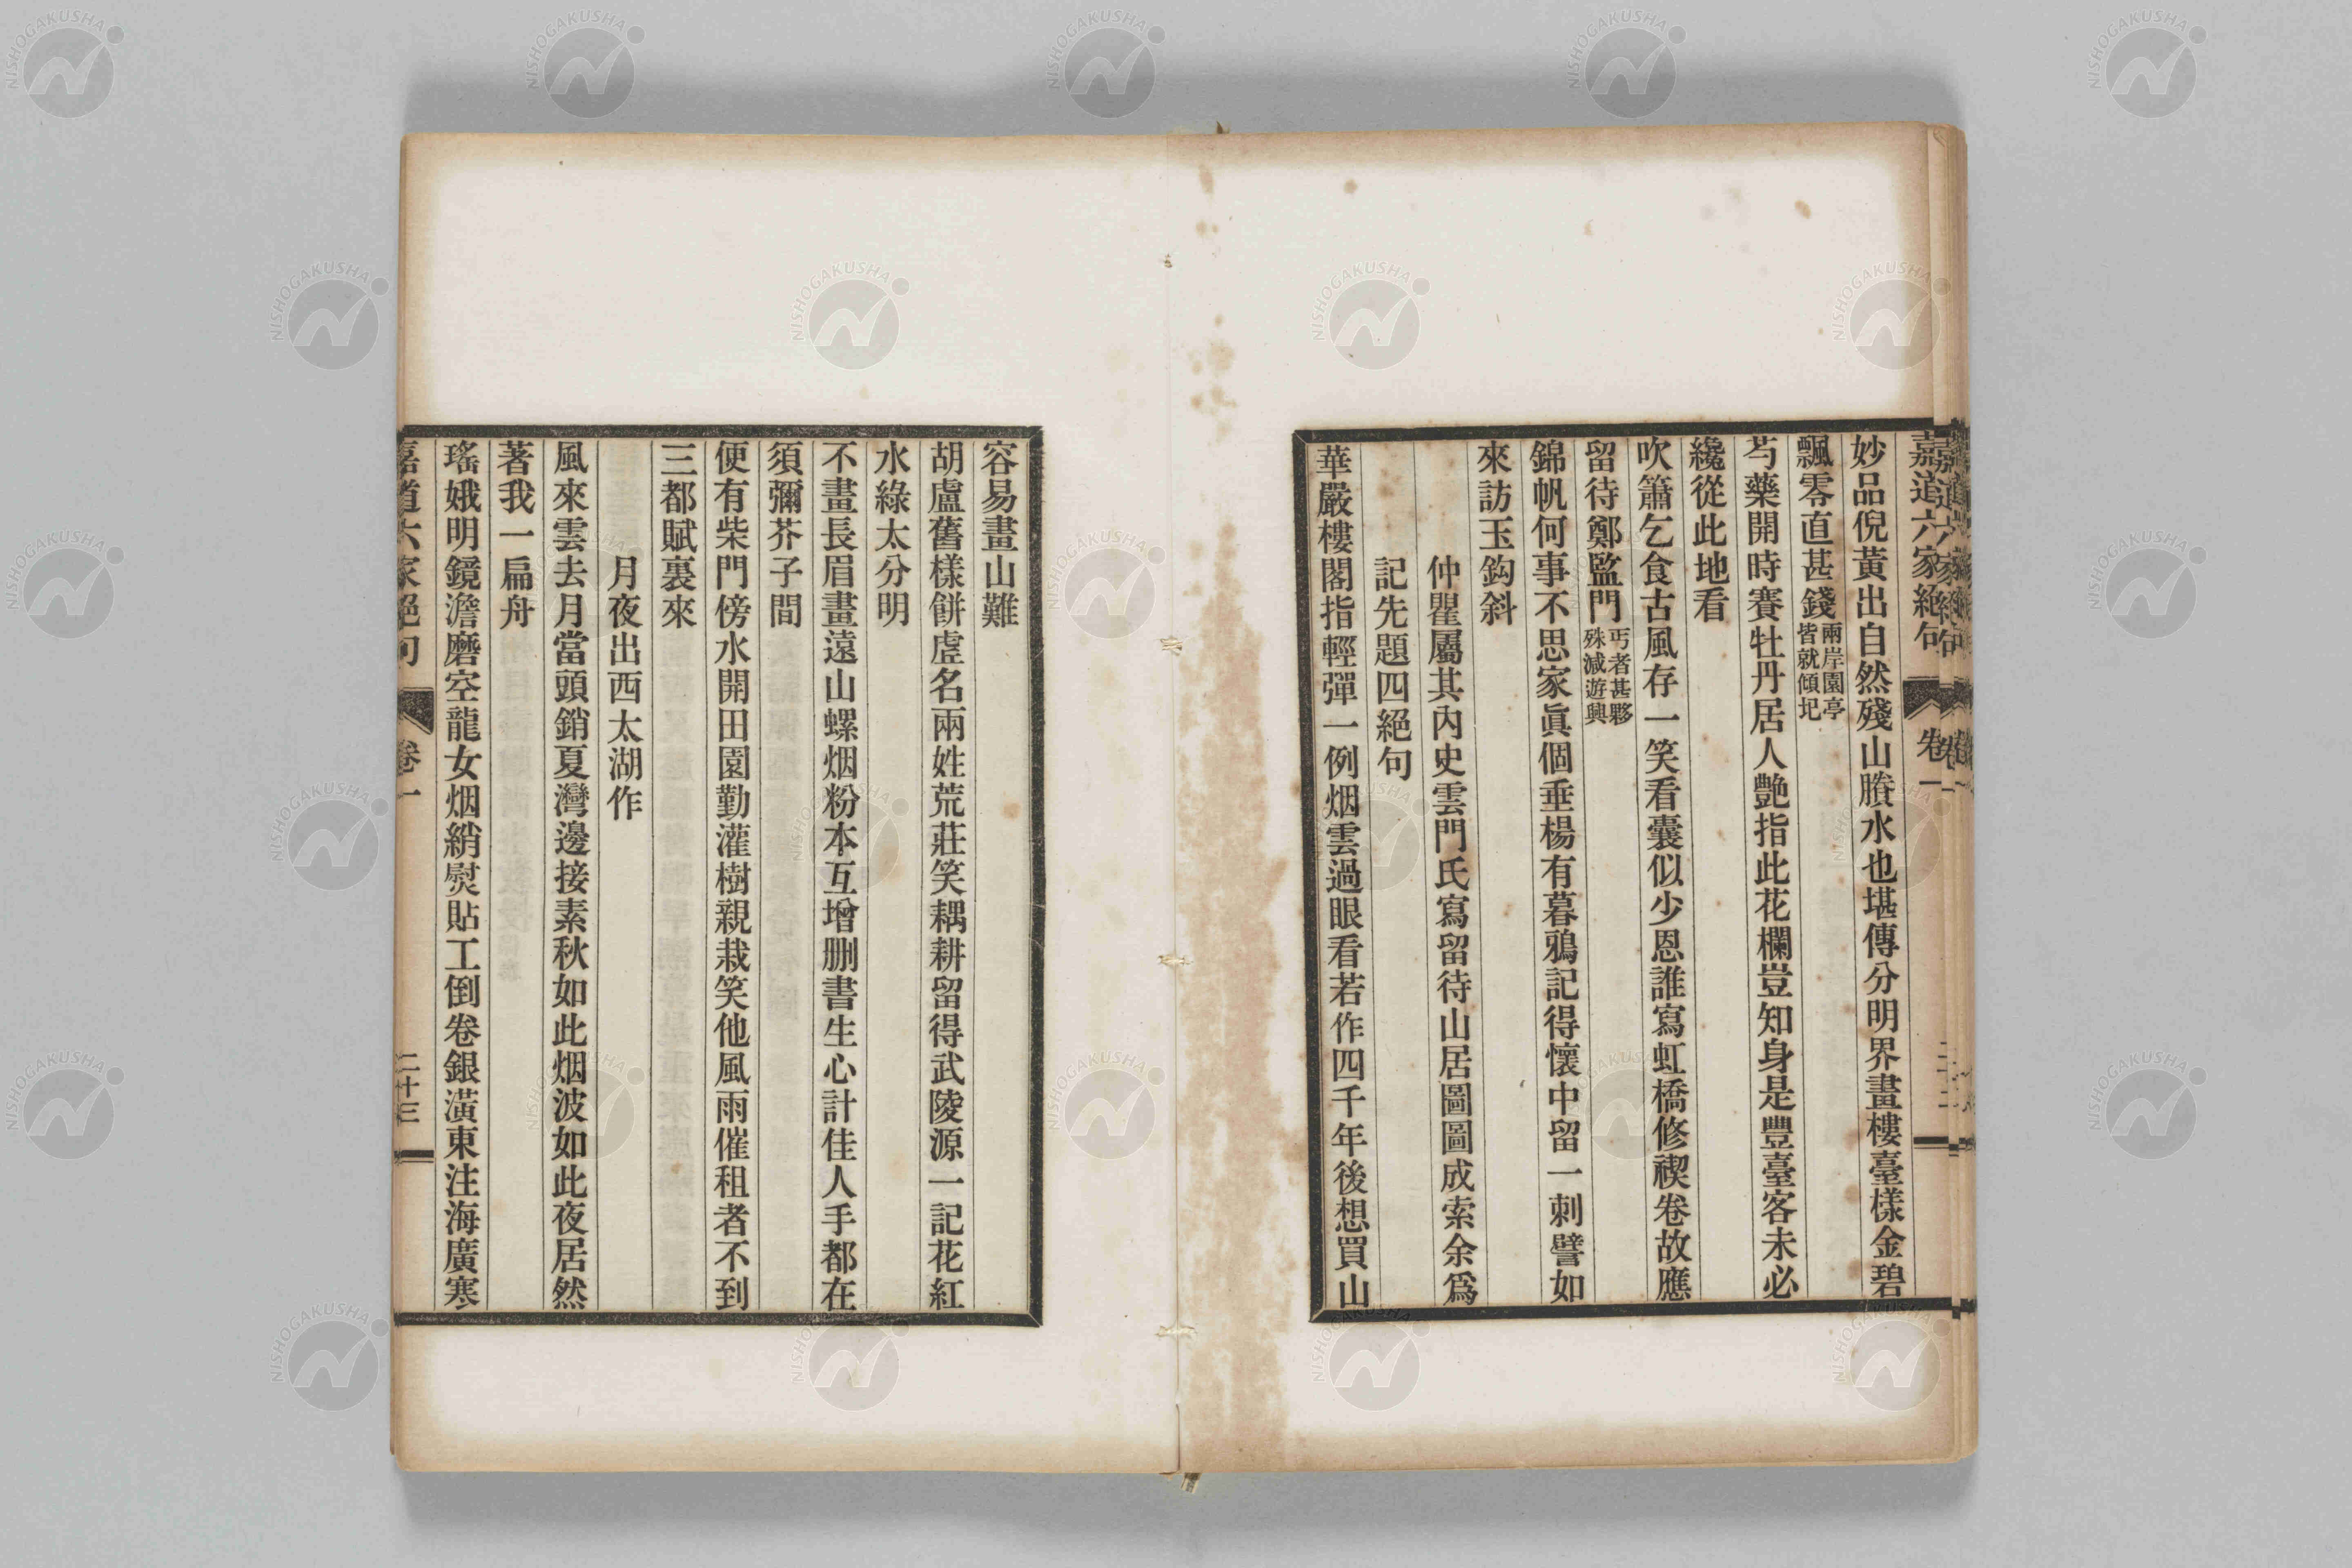 嘉道六家絕句
卷一
妙品倪黃出自然殘山賸水也堪傳分明界畫樓臺樣金碧
飄零直甚錢兩岸園亭皆就傾圮
芍藥開時賽牡丹居人艷指此花欄豈知身是豐臺客未必
纔從此地看
吹簫乞食古風存一笑看囊似少恩誰寫虹橋修禊卷故應
留待鄭監門丐者甚夥殊減遊興
錦帆何事不思家眞個垂楊有暮鴉記得懷中留一刺譬如
來訪玉鈎斜
仲瞿屬其內史雲門氏寫留待山居圖圖成索余爲
記先題四絕句
華嚴樓閣指輕彈一例烟雲過眼看若作四千年後想買山
容易畫山難
胡盧舊樣餅虛名兩姓荒莊笑耦耕留得武陵源一記花紅
水綠太分明
不畫長眉畫遠山螺烟粉本互增刪書生心計佳人手都在
須彌芥子間
便有柴門傍水開田園勤灌樹親栽笑他風雨催租者不到
三都賦裏來
月夜出西太湖作
風來雲去月當頭銷夏灣邊接素秋如此烟波如此夜居然
著我一扁舟
瑤娥明鏡澹磨空龍女烟綃熨貼工倒卷銀潢東注海廣寒
嘉道六家絕句
卷一
二十三
NISHOGAKUSHA